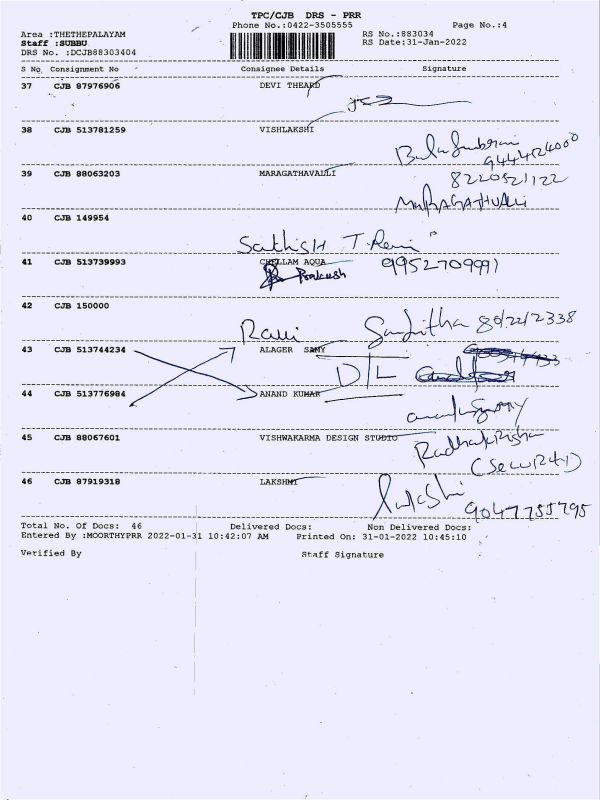 TPC/CJB DRS - PRR
Phone No.:0422-3505555 Page No.:4
Area :THETHEPALAYAM RS No.:883034
Staff :SUBBU RS Date:31-Jan-2022
DRS No. :DCJB88303404
S No Consignment No Consignee Details Signature
37 CJB 87976906 DEVI THEARD
38 CJB 513781259 VISHLAKSHI
9444424000
39 CJB 88063203 MARAGATHAVALLI 8220521122
40 CJB 149954
Sathish T. Ravi
41 CJB 513739993 CHELLAM AQUA 9952709991
Prakash
42 CJB 150000
Ravi
43 CJB 513744234 ALAGER SAMY
D/L
44 CJB 513776984 ANAND KUMAR
45 CJB 88067601 VISHWAKARMA DESIGN STUDIO
46 CJB 87919318 LAKSHMI
9047755795
Total No. Of Docs: 46 Delivered Docs: Non Delivered Docs:
Entered By :MOORTHYPRR 2022-01-31 10:42:07 AM Printed On: 31-01-2022 10:45:10
Verified By Staff Signature